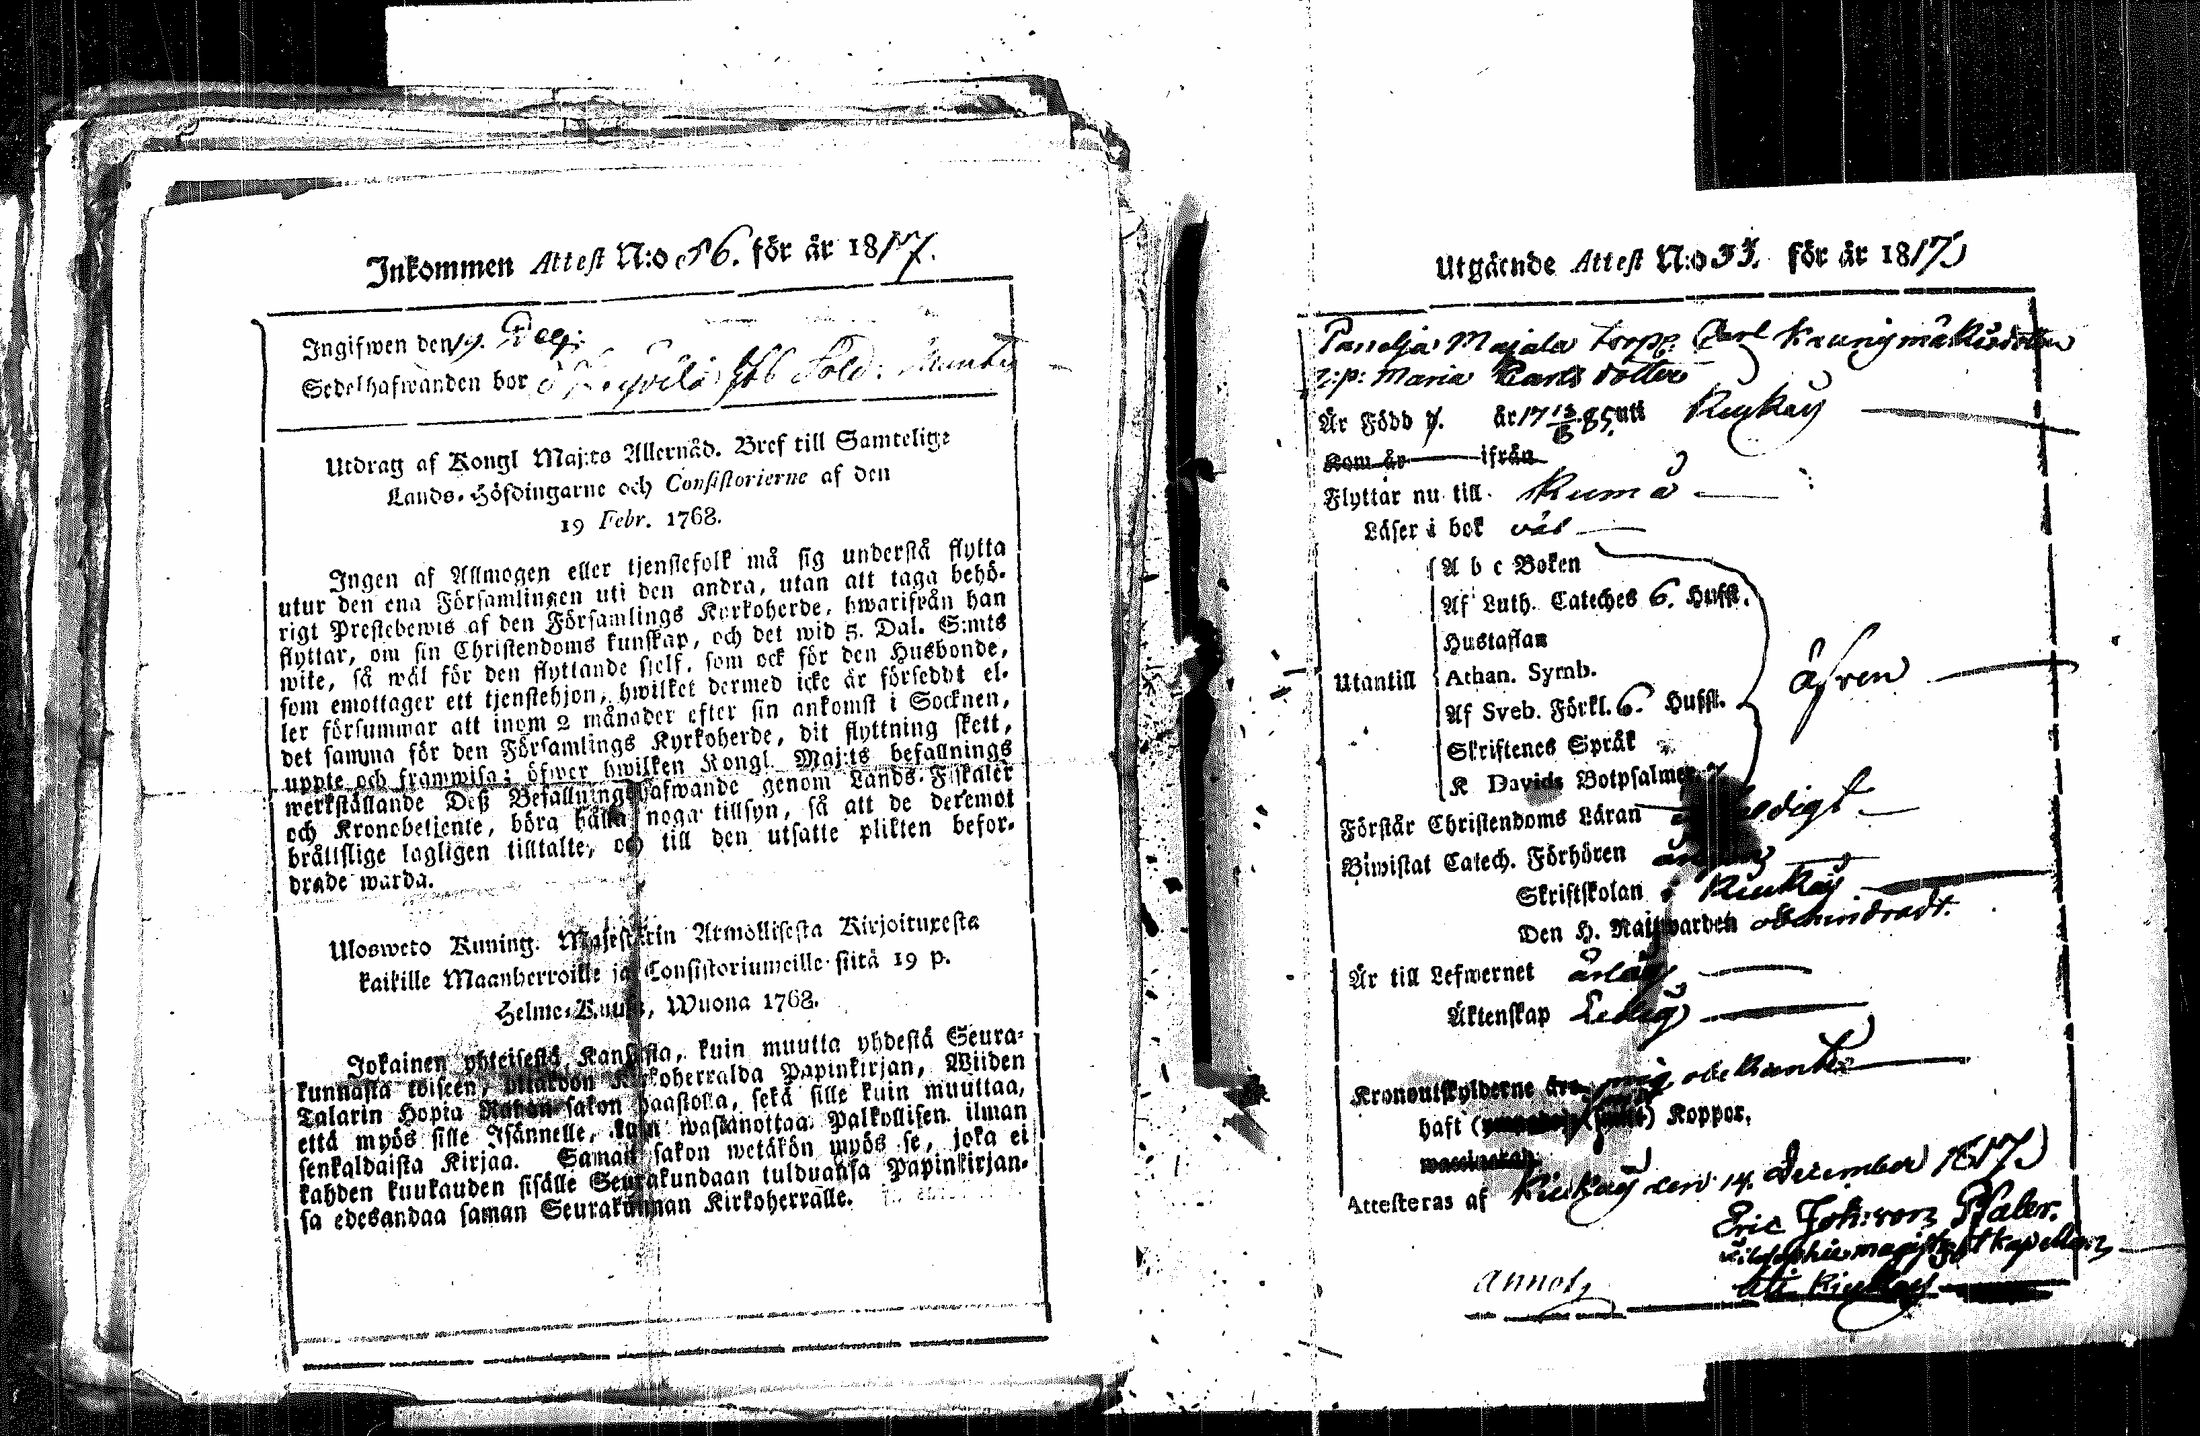 Inkommen Attest N:o 86. för år 1817.
Ingifwen den 19. Dec:
Sedelhafwanden bor Sold:
Utdrag af Kongl Maj:ts Allernåd. Bref till Samtelige
Lands-Höfdingarne och Consistorierne af den
19 Febr. 1768.
Ingen af Allmogen eller tjenstefolk må sig understå flytta
utur den ena Församlingen uti den andra, utan att taga behö-
rigt Prestebewis af den Församlings Kyrkoherde, hwarifrån han
flyttar, om sin Christendoms kunskap, och det wid 5. Dal. S:mts
wite, så wäl för den flyttande sjelf, som ock för den Husbonde,
som emottager ett tjenstehjon, hwilket dermed icke är försedt el-
ler försummar att inom 2 månader efter sin ankomst i Socknen,
det samma för den Församlings Kyrkoherde, dit flyttning skett,
uppte och framwisa; öfwer hwilken Kongl. Maj:ts befallnings
werkställande Deß Befallningshafwande genom Lands-Fiskaler
och Kronobetjente, böra hålla noga tillsyn, så att de deremot
bråttslige lagligen tilltalte, och till den utsatte plikten befor-
drade warda.
Ulosweto Kuning. Majestetin Armollisesta Kirjoituxesta
kaikille Maanherroille ja Consistoriumeille siitä 19 p.
Helme-Kuusa, Wuona 1768.
Jokainen yhteisestä Kansasta, kuin muutta yhdestä Seura-
kunnasta toiseen, ottakoon Kirkoherralda Papinkirjan, Wiiden
Talarin Hopia Rahan sakon haastolla, sekä sille kuin muuttaa,
että myös sille Isännelle, kuin wastanottaa Palkollisen ilman
senkaldaista Kirjaa. Saman sakon wetäkön myös se, joka ei
kahden kuukauden sisälle Seurakundaan tulduansa Papinkirjan-
sa edesandaa saman Seurakunnan Kirkoherralle.
Utgående Attest N:o 33. för år 1817
Panelja Majala torpp. Carl
p: Maria Carls dotter
Är Född år 17 85 uti Kiukais
Kom år ifrån
Flyttar nu till Kumå
Läser i bok väl
A b c Boken
Af Luth. Cateches 6. Hufst.
Hustaflan
Utantill Athan. Symb.
Af Sveb. Förkl. 6. Hufst.
Skriftenes Språk
K Davids Botpsalmer
äfven
Förstår Christendoms Läran
Biwistat Catech. Förhören
Skriftskolan i Kiukais
Den H. Nattwarden obehindradt.
Är till Lefwernet ärlig
Äktenskap Ledig
Kronoutskylderne äro mig obekante
haft Koppor.
Attesteras af Kiukais den 14. December 1817
Eric Joh: von Pfaler.
kapellan
uti Kiukais
Annot,